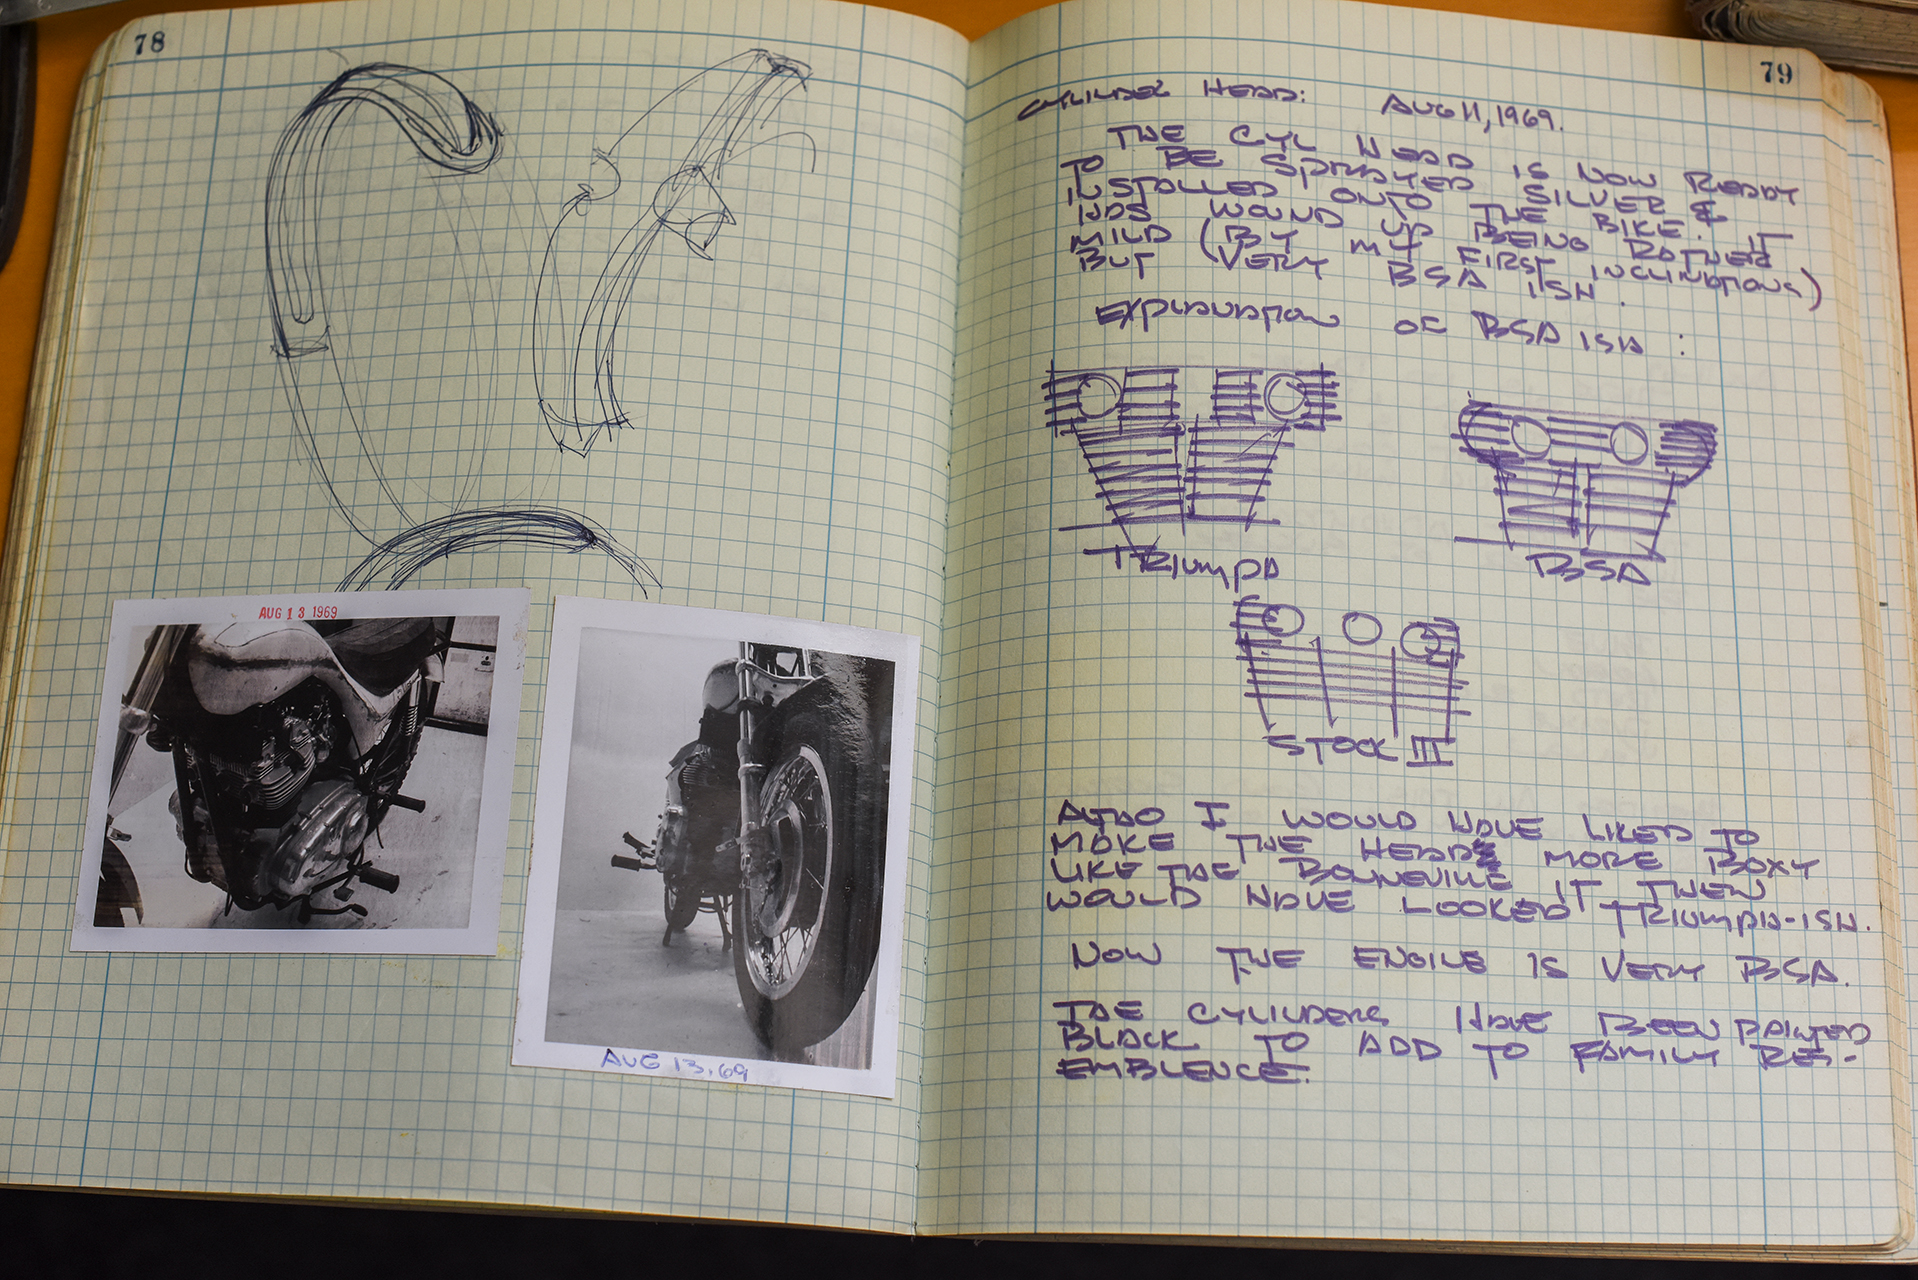 78
AUG 13 1969
AUG 13.69
79
CYLINDER HEAD: AUG 11, 1969.
THE CYL HEAD IS NOW READY
TO BE SPRAYED SILVER &
INSTALLED ONTO THE BIKE. IT
HAS WOUND UP BEING RATHER
MILD (BY MY FIRST INCLINATIONS)
BUT (VERY BSA ISH.
EXPLANATION OF BSA ISH:
TRIUMPH
BSA
STOCK III
ALSO I WOULD HAVE LIKED TO
MAKE THE HEADS MORE BOXY
LIKE THE BONNEVILLE IT THEN
WOULD HAVE LOOKED TRIUMPH-ISH.
NOW THE ENGINE IS VERY BSA.
THE CYLINDERS HAVE BEEN PAINTED
BLACK TO ADD TO FAMILY RES-
EMBLENCE.